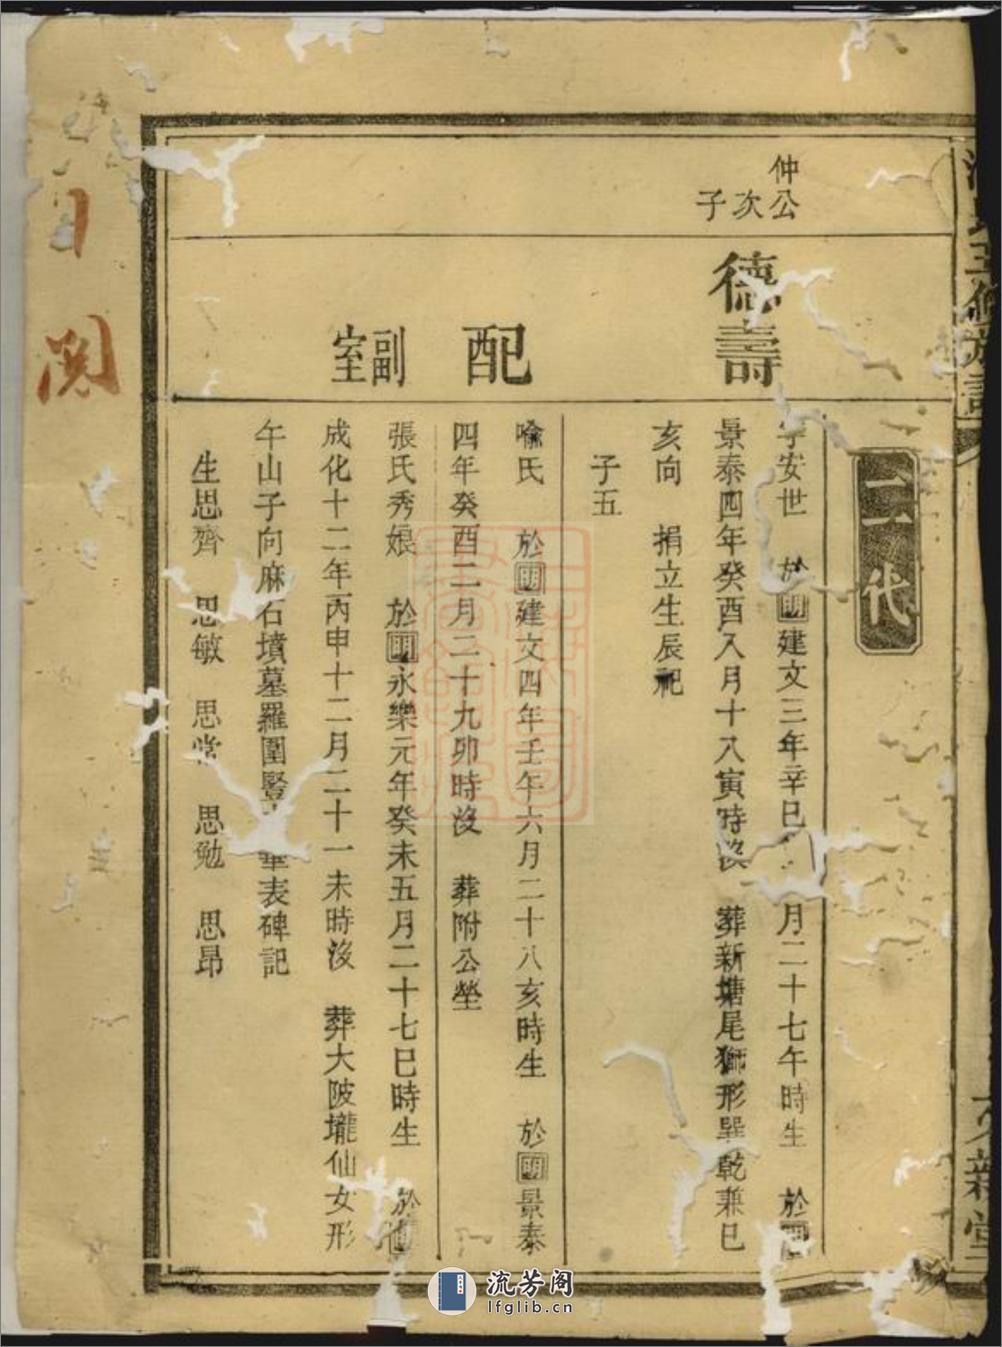 二代
仲公次子
德壽
字安世 於明建文三年辛巳 月二十七午時生 於明
景泰四年癸酉八月十八寅時沒 葬新塘尾獅形巽乾兼巳
亥向 捐立生辰祀
子五
配
喻氏 於明建文四年壬午六月二十八亥時生 於明景泰
四年癸酉二月二十九卯時沒 葬附公塋
副室
張氏秀娘 於明永樂元年癸未五月二十七巳時生 於明
成化十二年丙申十二月二十一未時沒 葬大陂壠仙女形
午山子向麻石墳墓羅圍豎 華表碑記
生思齊 思敏 思常 思勉 思昂
五修族譜
新堂
閱
流芳阁
lfglib.cn